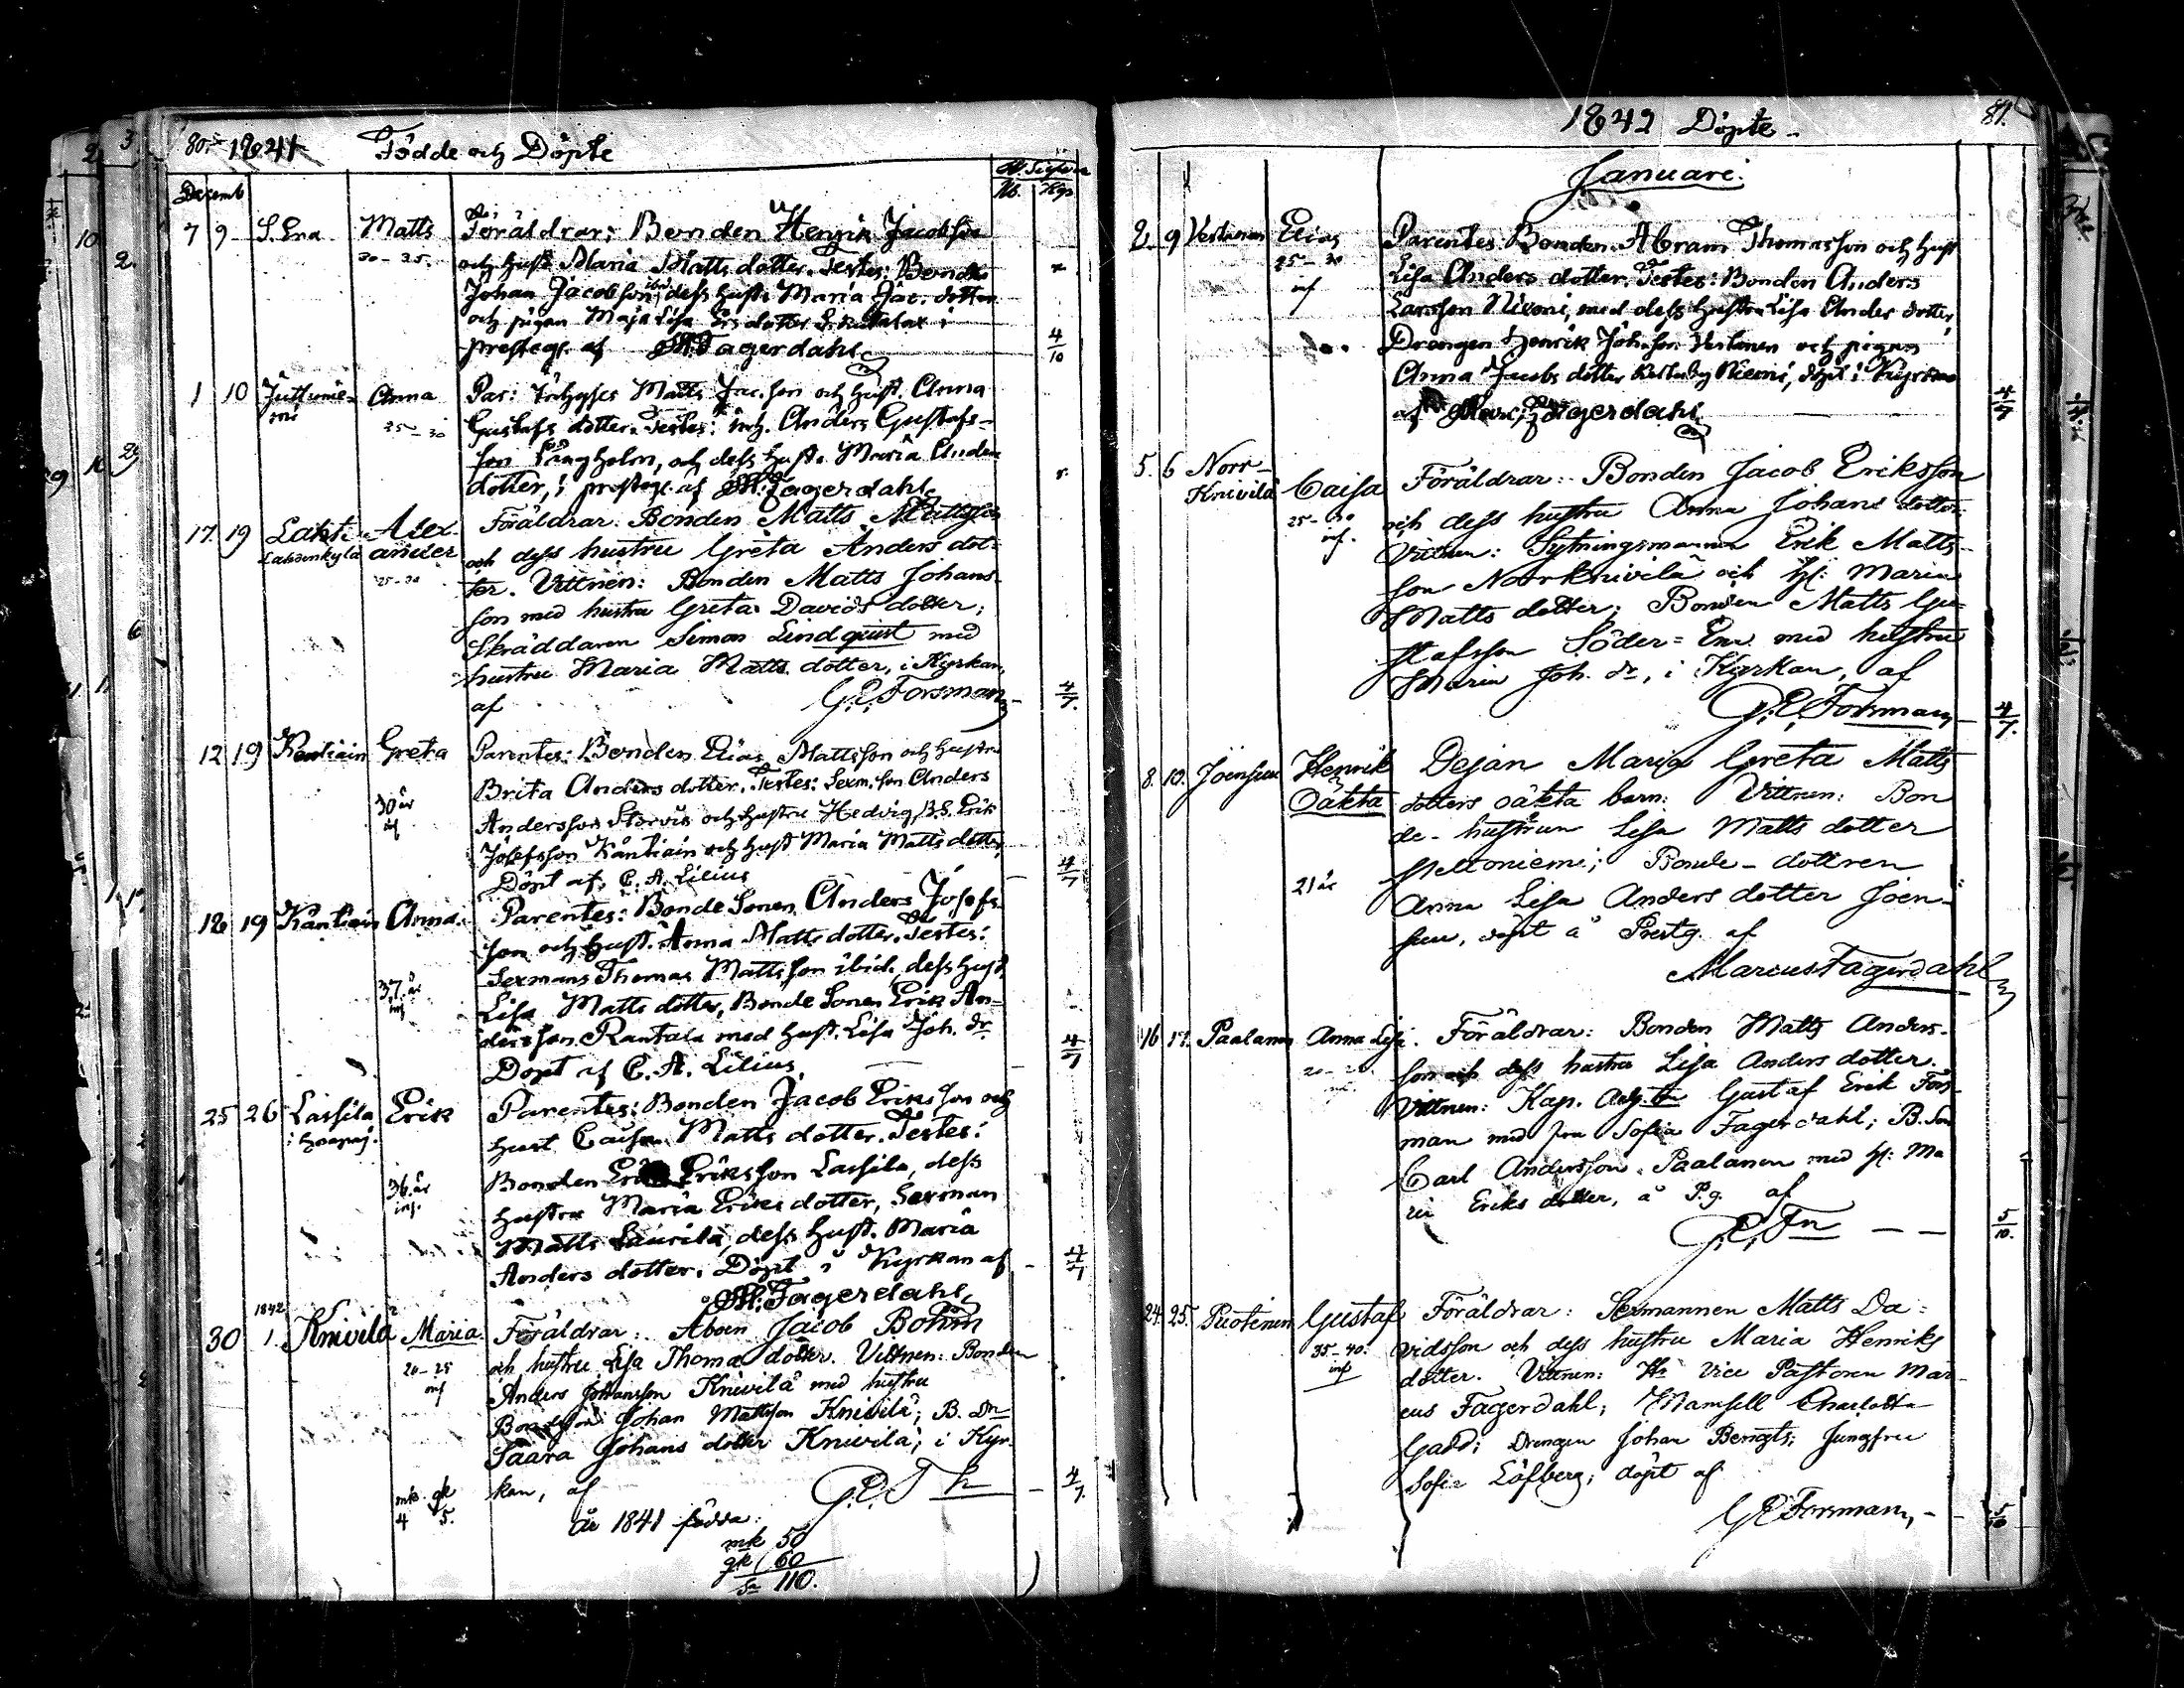 80. 1841 Födde och Döpte
Decemb
7 9 S. Ena Matts Föräldrar: Bonden Henrik Jacobsson
30-35. och hust. Maria Matts dotter. Testes: Bonden
Johan Jacobsson ibid. dess hustr. Maria Jac. dotter
och pigan Maja Lisa Ers dotter i
presteg. af M. Fagerdahl
4/10
1 10 Juttunie-
mi Anna Par: Inhyses Matts Jac.son och hust. Anna
25-30 Gustafs dotter. Testes: inh. Anders Gustafs-
son Ängholm, och dess hust. Maria Anders
dotter, i prosteg. af M. Fagerdahl
17. 19 Lahti Alex- Föräldrar: Bonden Matts Mattsson
Lahdenkylä ander och dess hustru Greta Anders dot-
25-30 ter. Vittnen: Bonden Matts Johans-
son med hustru Greta Davids dotter;
Skräddaren Simon Lindquist med
hustru Maria Matts dotter, i Kyrkan,
af G. E. Forsman
4/7.
12 19 Kantiain Greta Parentes: Bonden Elias Mattsson och hustru
Brita Anders dotter. Testes: Sexm. son Anders
30 år
inf Andersson Storvis och hustru Hedvig, B.S. Erik
Josefsson Kantiain och hust Maria Matts dotter,
Döpt af C. A. Lilius
4/7
18 19 Kantiain Anna. Parentes: Bonde Sonen Anders Josefs-
son och hust. Anna Matts dotter. Testes:
37 år
inf Sexmans Thomas Mattsson ibid. dess hust.
Lisa Matts dotter, Bonde Sonen Erik An-
dersson Rantala med hust. Lisa Joh. dr.
Döpt af C. A. Lilius.
4/7
25 26 Lassila Erik Parentes: Bonden Jacob Eriksson och
i Haapaj. hust Caisa Matts dotter. Testes:
Bonden Erik Eriksson Lassila, dess
36 år
inf. hustru Maria Eriks dotter, Sexman
Matts Laurila, dess hust. Maria
Anders dotter. Döpt i Kyrkan af
M: Fagerdahl,
4/7
1842
30 1. Knivilä Maria. Föräldrar: Åboen Jacob Böhm
20-25
inf och hustru Lisa Thomas dotter. Vittnen: Bonden
Anders Johansson Knivilä med hustru
Bondeson Johan Mattsson Knivilä; B. Dn
Saara Johans dotter Knivilä; i Kyr-
kan, af G. E. Fn
4/7.
mk. gk
4 5.
år 1841 födda:
mk 50
gk 60
Sa 110.
1842 Döpte 81.
Januari.
2. 9 Vestanen Elias Parentes Bonden Abram Thomasson och hust
25-30
inf Lisa Anders dotter. Testes: Bonden Anders
Larsson Niemi, med dess hustru Lisa Anders dotter,
Drengen Henrik Johnson Vestanen och pigan
Anna Jacobs dotter Niemi, döpt i Kyrkan
af Marc: Fagerdahl
4/7
5. 6 Norr- Caisa Föräldrar: Bonden Jacob Eriksson
Knivilä 25-30
inf. och dess hustru Anna Johans dotter.
Vittnen: Sytningsmannen Erik Matts-
son Norrknivilä och H: Maria
Matts dotter; Bonden Matts Gu-
stafsson Söder=Ena med hustru
Maria Joh. dr, i Kyrkan, af
G. E. Forsman
4/7.
8. 10. Joensuu Henrik Dejan Maria Greta Matts
Oäkta dotters oäkta barn: Vittnen: Bon
de-hustrun Lisa Matts dotter
Peltoniemi; Bonde-dottren
21 år Anna Lisa Anders dotter Joen-
suu, döpt å Prestg. af
Marcus Fagerdahl
16 17. Paalanen Anna Lisa. Föräldrar: Bonden Matts Anders-
son och dess hustru Lisa Anders dotter.
Vittnen: Kap. Adj. Gustaf Erik Fors-
man med fru Sofia Fagerdahl; B. Son
Carl Andersson Paalanen med H: Ma
ria Eriks dotter, å P.g. af
G. E. Fn
5/10.
24. 25. Puotinen Gustaf Föräldrar: Sexmannen Matts Da-
35-40.
inf vidsson och dess hustru Maria Henriks
dotter. Vittnen: Hr Vice Pastoren Mar-
cus Fagerdahl; Mamsell Charlotta
Gadd; Drengen Johan Bengts; Jungfru
Sofia Löfberg; döpt af
G E Forsman,
5/10